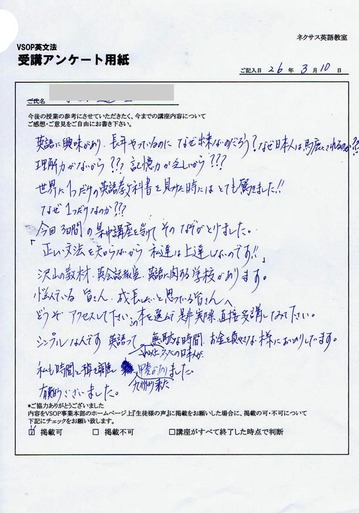 ネクサス英語教室
VSOP英文法
受講アンケート用紙
ご記入日 26 年 3 月 10 日
ご氏名
今後の授業の参考にさせていただきたく、今までの講座内容について
ご感想・ご意見などをご自由にお書き下さい。
英語に興味があり、長年やっているのになぜ出来ないのだろう？なぜ日本人は
理解力がないから？？？記憶力が乏しいから？？？
世界に1つだけの英語教科書を見つけた時にはとても驚きました!!
なぜ1つなのか???
今回3日間の集中講座を受けてそのなぞがとけました。
「正しい文法を知らないから私達は上達しないのです!!」
沢山の教材、英会話教室、英語に関する学校があります。
悩んでいる皆さん、成長したいと思っている皆さんへ
どうぞアクセスして下さい。この本を選んで是非実際、直接受講してみて下さい。
シンプルなんです 英語って 無駄な時間、お金を費やさない様にお祈りします。
私も時間と
九州から来た
有難うございました。
*ご協力ありがとうございました
内容をVSOP事業本部のホームページ上『生徒様の声』に掲載をお願いした場合に、掲載の可・不可について
下記にチェックをお願い致します。
☑ 掲載可 □ 掲載不可 □講座がすべて終了した時点で判断